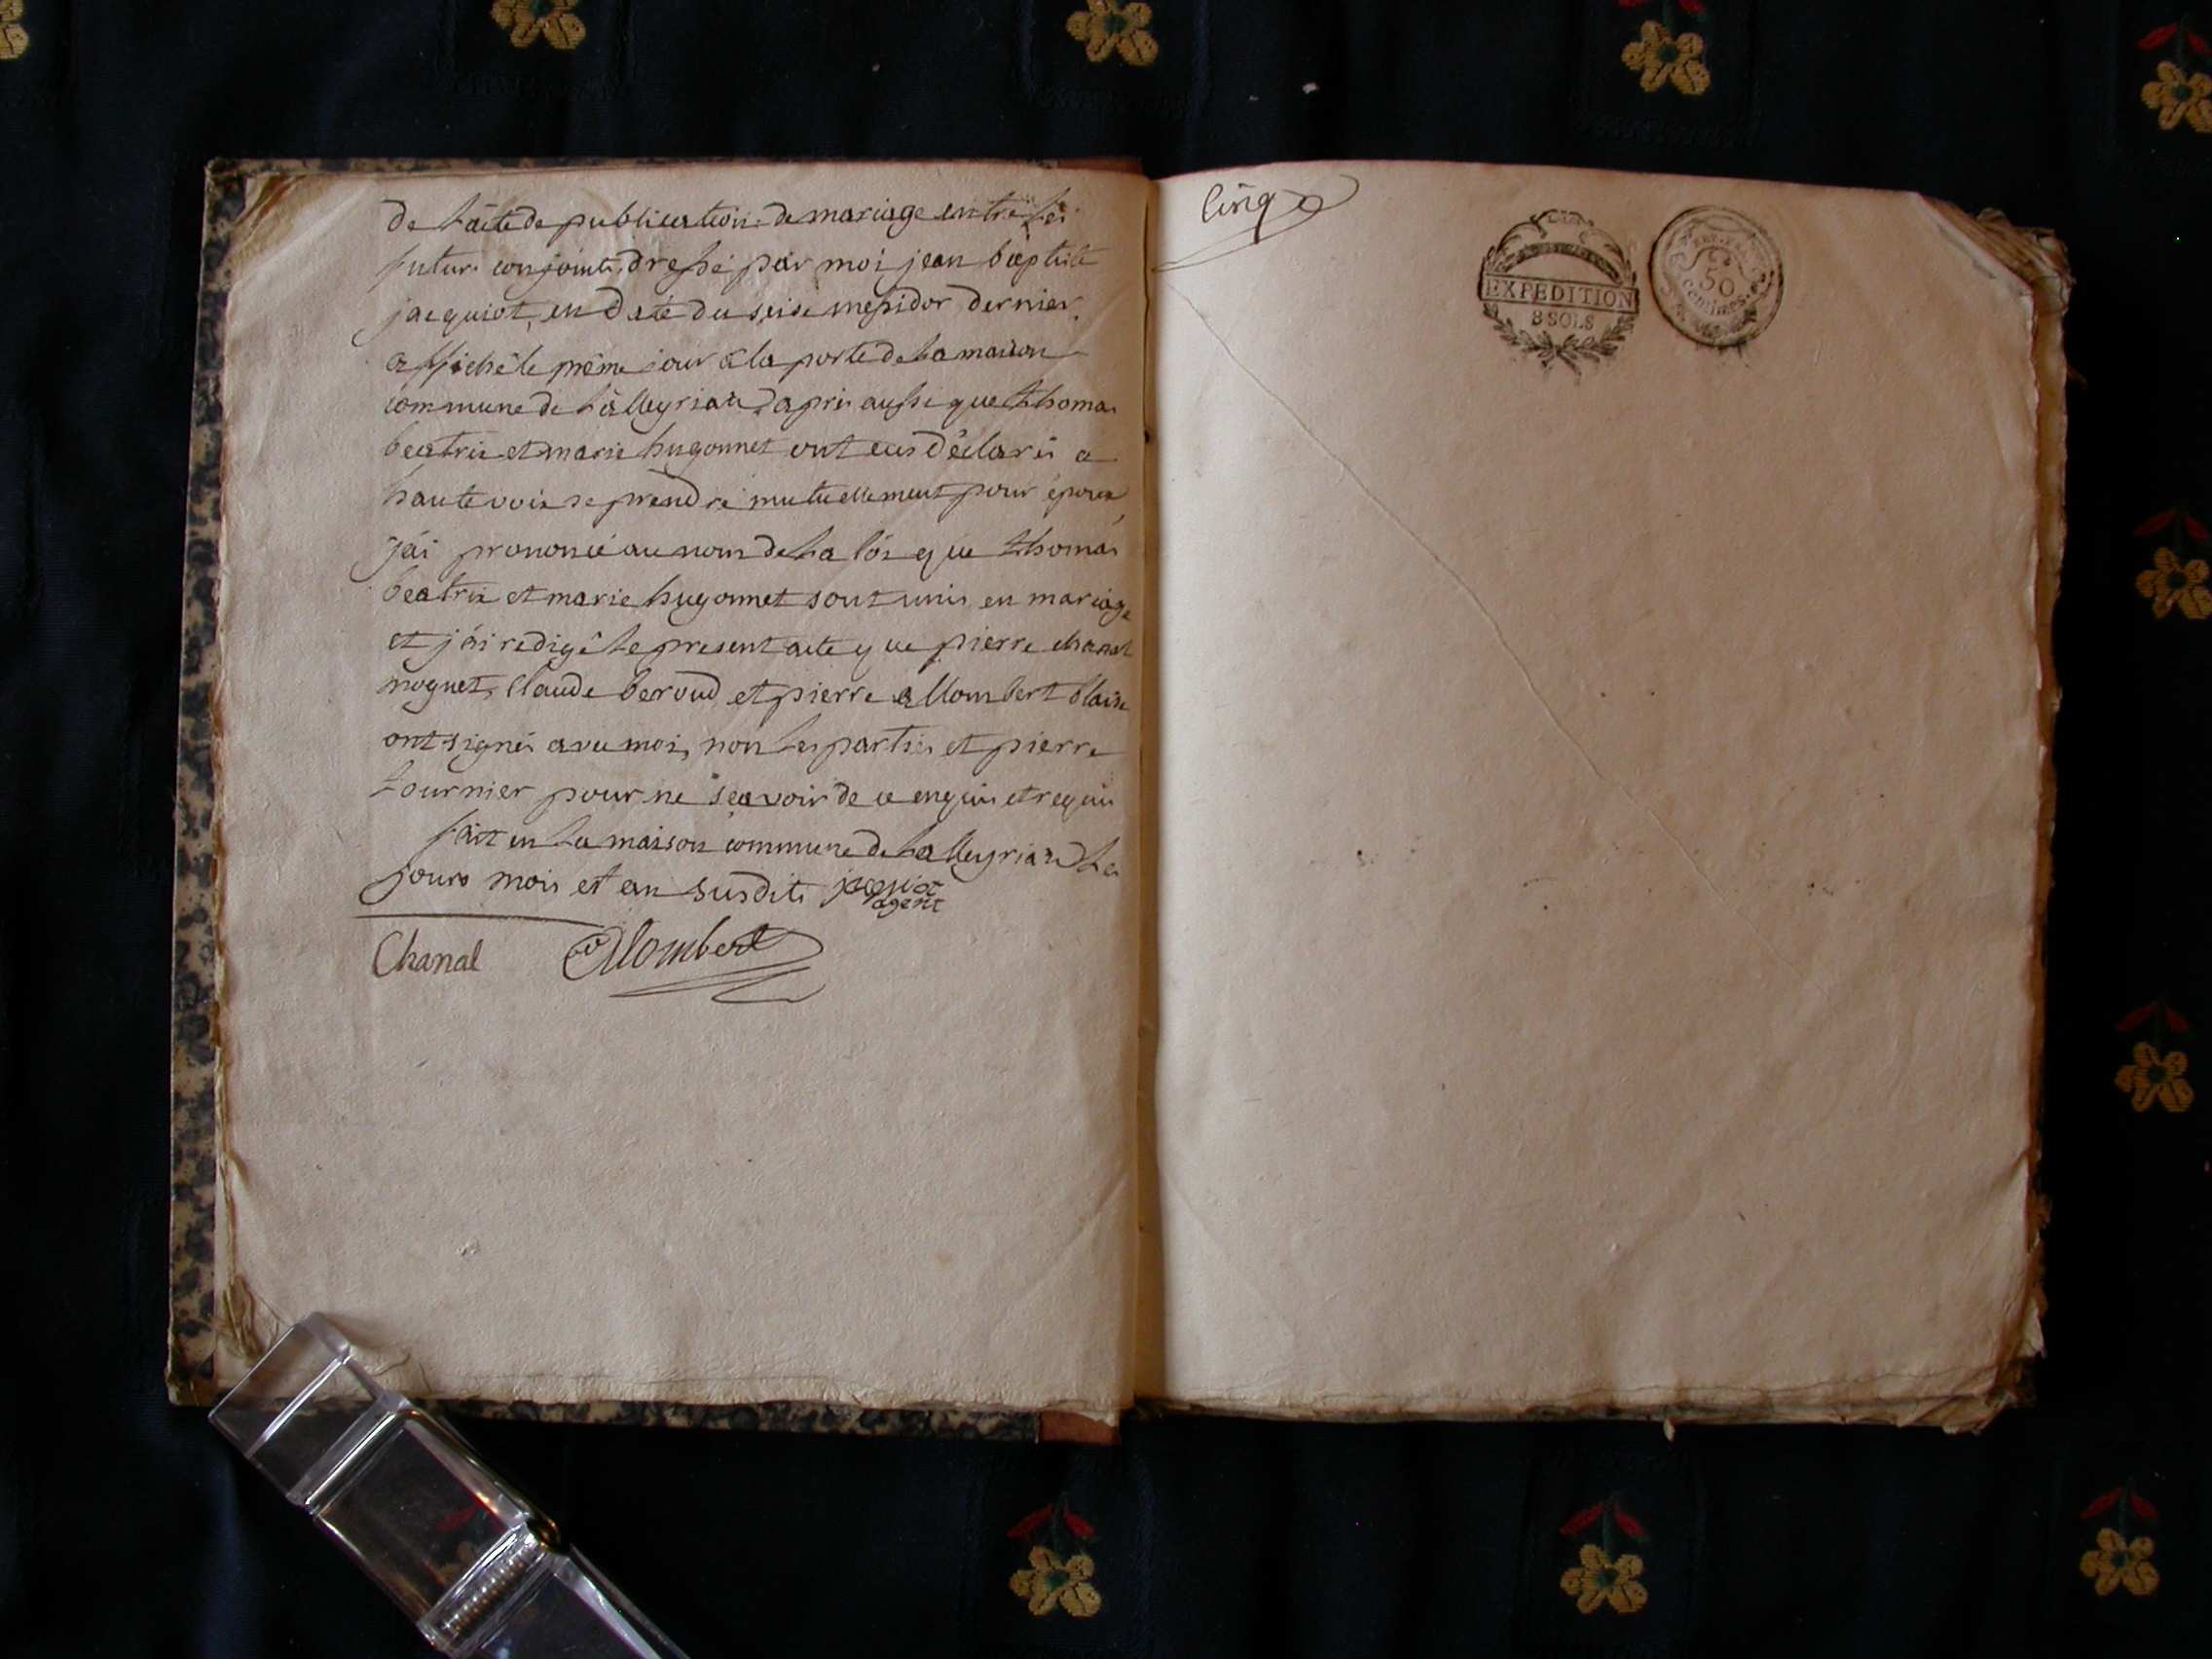 de l'acte de publication de mariage entre les
futurs conjoints, dressé par moi jean baptiste
jacquiot, en daté du seise messidor dernier,
affiché le même jour a la porte de la maison
commune de Lalleyriat, apres aussi que thomas
beatrix et marie hugonnet ont eus déclarés a
haute voix se prendre mutuellement pour époux,
j'ai prononcé au nom de la loi que thomas
beatrix et marie hugonnet sont unis en mariage
et j'ai redigé le present acte que pierre chanal
moguet, Claude beroud et pierre allombert blaise
ont signés avec moi, non les parties et pierre
tournier pour ne sçavoir de ce enquis et requis
fait en la maison commune de Lalleyriat les
jours mois et an susdits jacquiot
agent
Chanal Allombert
Cinq
EXPEDITION
8 SOLS
50
centimes